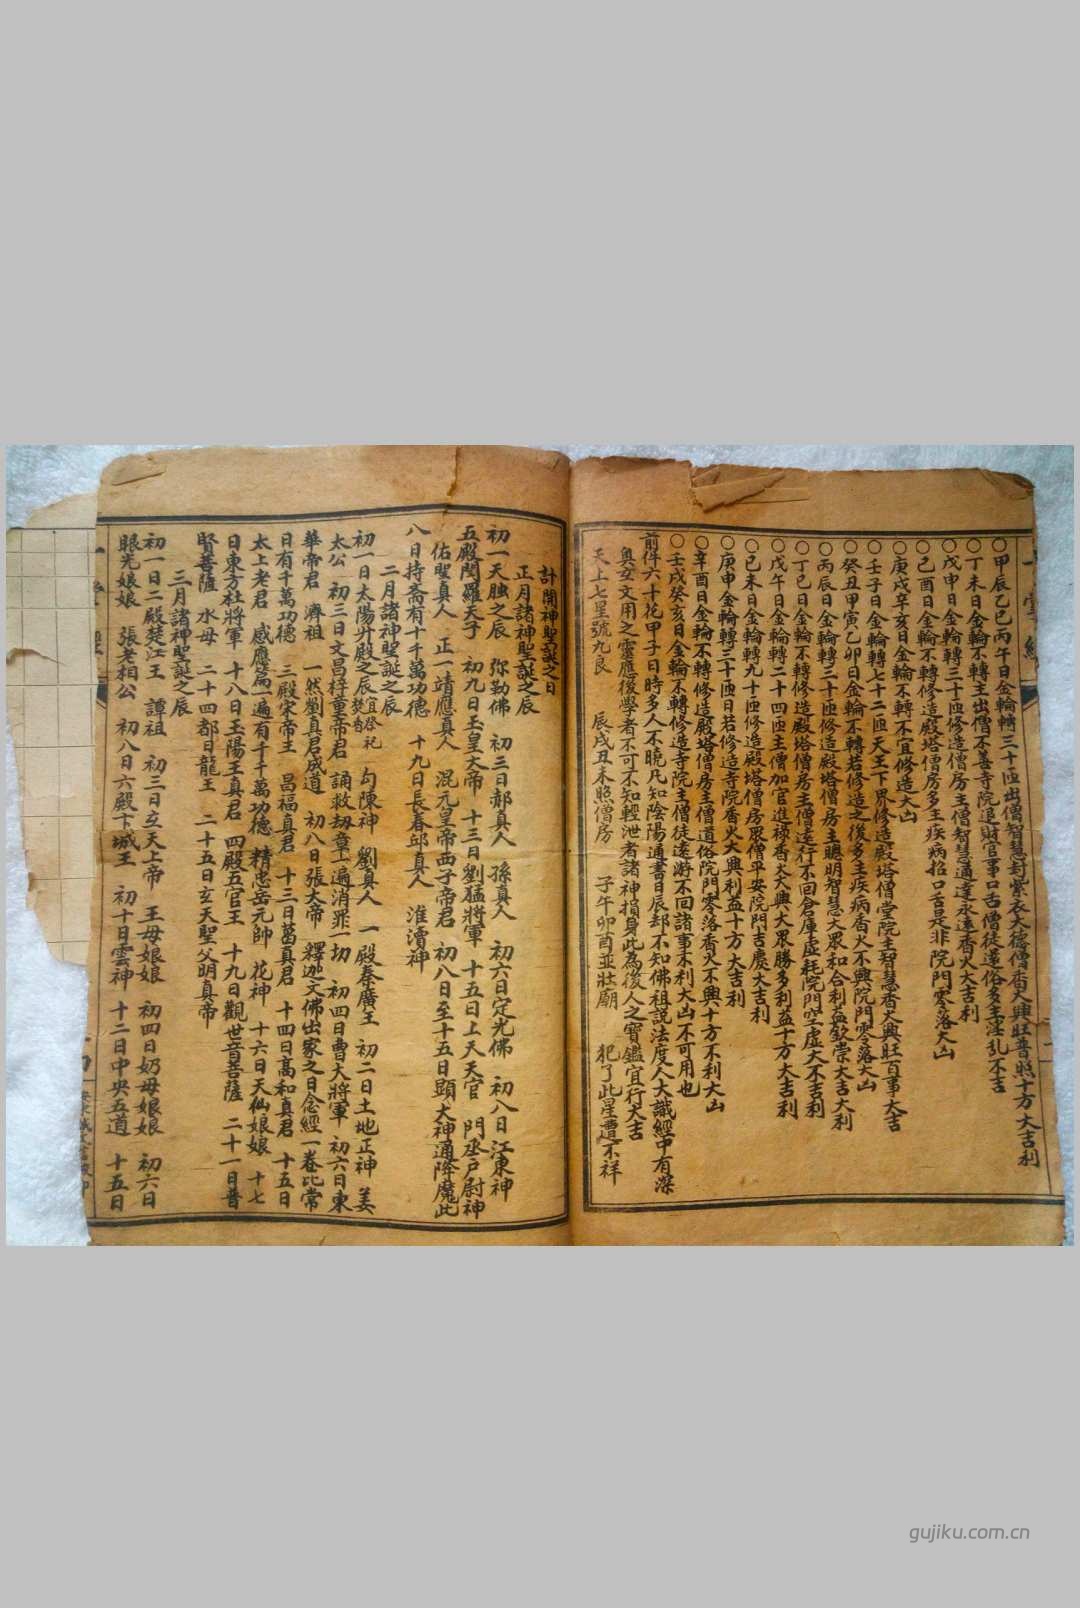 ○甲辰乙巳丙午日金輪轉三十匝出僧智慧封紫衣大德僧香火興旺普照十方大吉利
○丁未日金輪不轉主出僧不善寺院退財官事口舌僧徒還俗多主淫乱不吉
○戊申日金輪轉三十匝修造僧房主僧智慧通達永遠香火大吉利
○己酉日金輪不轉修造殿塔僧房多主疾病招口舌是非院門寒落大凶
○庚戌辛亥日金輪不轉不宜修造大凶
○壬子日金輪轉七十二匝天王下界修造殿塔僧堂院主智慧香火興旺百事大吉
○癸丑甲寅乙卯日金輪不轉若修造之後多主疾病香火不興院門零落大凶
○丙辰日金輪轉三十匝修造殿塔僧房主聰明智慧大眾和合利益欽崇大吉大利
○丁巳日金輪不轉修造殿塔僧房主僧遠行不回倉庫虛耗院門空虛大不吉利
○戊午日金輪轉二十四匝主僧加官進祿香火大興大眾勝多利益十方大吉利
○己未日金輪轉九十匝修造殿塔僧房眾僧平安院門吉慶大吉利
○庚申金輪轉三十匝日若修造寺院香火大興利益十方大吉利
○辛酉日金輪不轉修造殿塔僧房主僧道俗院門寒落香火不興十方不利大凶
○壬戌癸亥日金輪不轉修造寺院主僧徒遠游不回諸事未利大凶不可用也
前件六十花甲子日時多人不曉凡知陰陽通書日辰却不知佛祖説法度人大識經中有深
奧玄文用之靈應後學者不可不知輕泄者諸神損身此為後人之寶鑑宜行大吉
天上七星號九良 辰戌丑未照僧房 子午卯酉並壯廟 犯了此星遭不祥
計開神聖誕之日
正月諸神聖誕之辰
初一天臘之辰 弥勒佛 初三日郝真人 孫真人 初六日定光佛 初八日江東神
五殿閻羅天子 初九日玉皇大帝 十三日劉猛將軍 十五日上天天官 門丞户尉神
佑聖真人 正一靖應真人 混元皇帝西子帝君 初八日至十五日顕大神通降魔此
八日持齋有千千萬功德 十九日長春邱真人 淮瀆神
二月諸神聖誕之辰
初一日太陽升殿之辰宜祭祀焚香 勾陳神 劉真人 一殿秦廣王 初二日土地正神 姜
太公 初三日文昌梓童帝君 誦救劫章一遍消罪一切 初四日曹大將軍 初六日東
華帝君 濟祖 一然劉真君成道 初八日張大帝 釋迦文佛出家之日念經一卷比常
日有千萬功德 三殿宋帝王 昌福真君 十三日葛真君 十四日高和真君 十五日
太上老君 感應篇一遍有千千萬功德 精忠岳元帥 花神 十六日天仙娘娘 十七
日東方社將軍 十八日玉陽王真君 四殿五官王 十九日觀世音菩薩 二十一日普
賢菩薩 水母 二十四都日龍王 二十五日玄天聖父明真帝
三月諸神聖誕之辰
初一日二殿楚江王 譚祖 初三日玄天上帝 王母娘娘 初四日奶母娘娘 初六日
眼光娘娘 張老相公 初八日六殿卞城王 初十日雲神 十二日中央五道 十五日
gujiku.com.cn